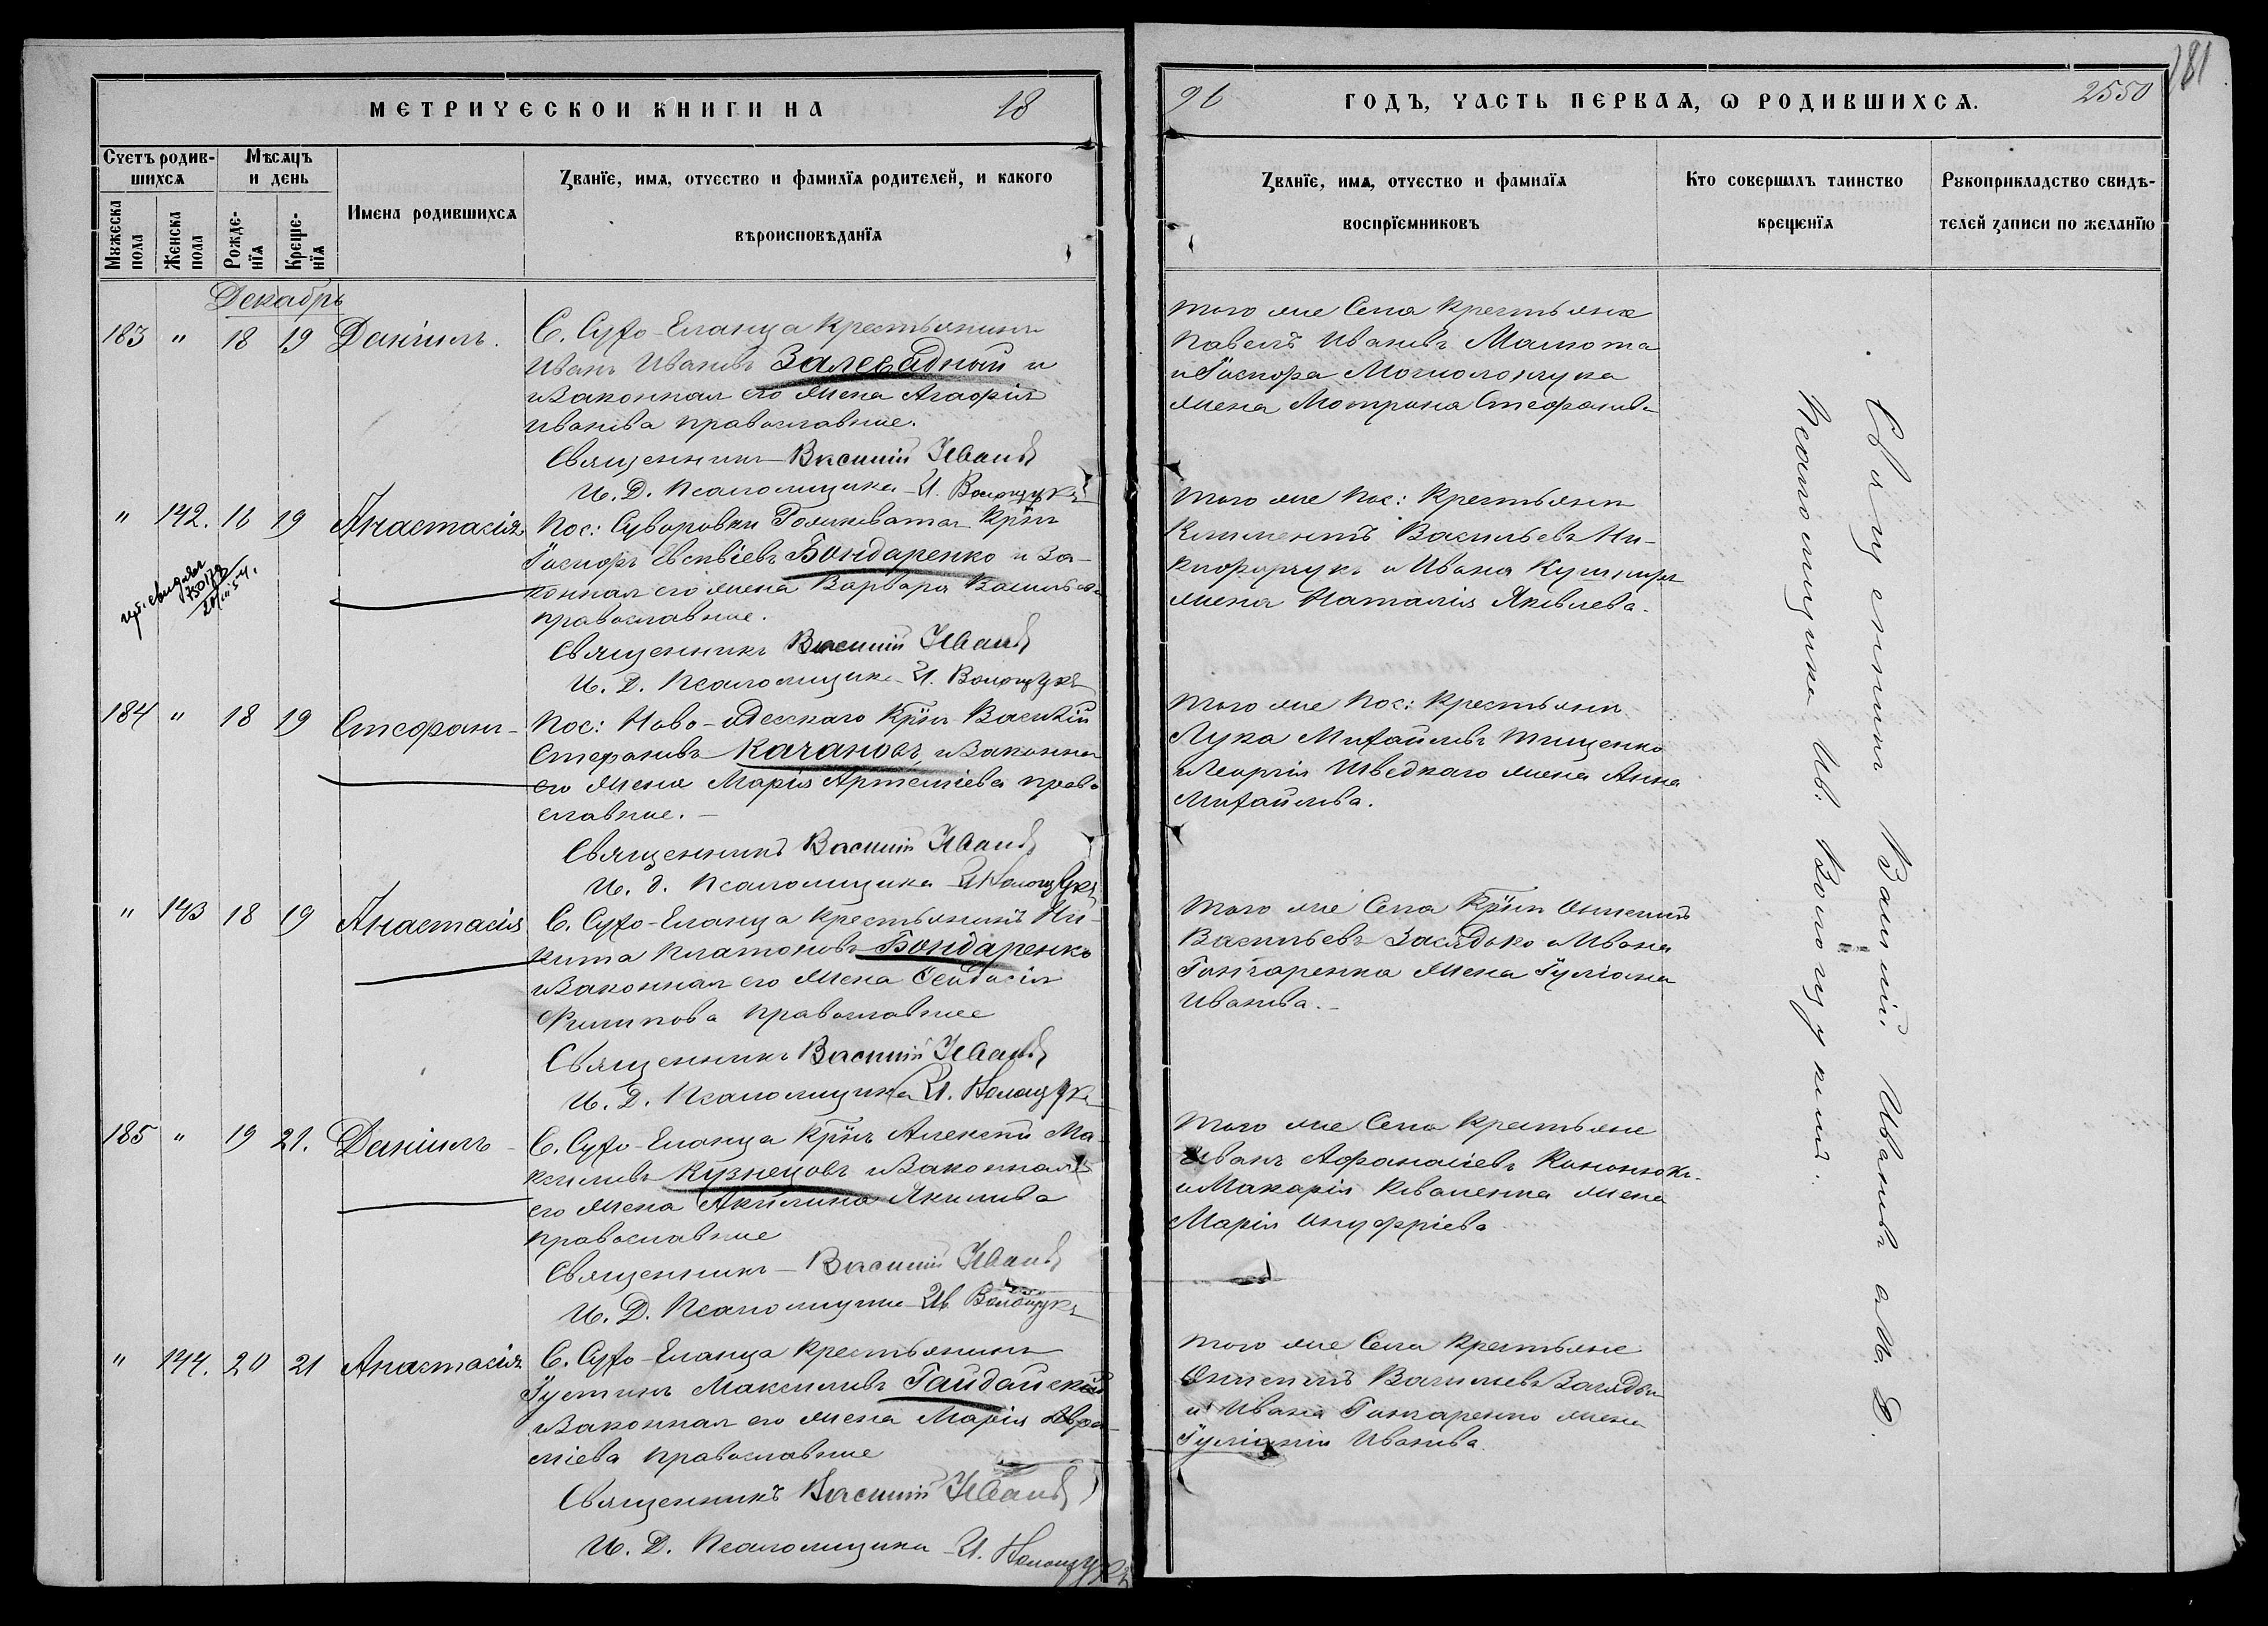 181
МЕТРИЧЕСКОИ КНИГИ НА 18
96 ГОДЪ, ЧАСТЬ ПЕРВАѦ, Ѡ РОДИВШИХСѦ. 2550
Счетъ родив-
шихсѧ
Мѣсѧцъ
и день
Мꙋжеска
пола
Женска
пола
Рожде-
нїѧ
Креще-
нїѧ
Имена родившихсѧ
Званїе, имѧ, отчество и фамилїѧ родителей, и какого
вѣроисповѣданїѧ
Званїе, имѧ, отчество и фамилїѧ
воспрїемниковъ
Кто совершалъ таинство
крещенїѧ
Рꙋкоприкладство свидѣ-
телей записи по желанїю
Декабрь
183 " 18 19 Даніилъ.
С. Сухо-Еланца крестьянинъ
Иванъ Ивановъ Залевадный и
законная его жена Агафія
Иванова православные.
Священникъ Василій Ивановъ
И. Д. Псаломщика И. Волощукъ
того же Села крестьяне
Павелъ Ивановъ Малюта
и Гаспора
жена Мотрона Стефанова
" 142. 16 19 Анастасія
Пос: Суворовки Крᷤнъ
Бондаренко и за-
конная его жена Варвара Васильева
православные.
Священникъ Василій Ивановъ
И. Д. Псаломщика И. Волощукъ
того же Пос: Крестьяне
Климентъ Васильевъ Ни-
кифорчукъ и Ивана
жена Наталія Яковлева.
184 " 18 19 Стефанъ
Пос: Ново-Одесскаго Крᷤнъ Василій
Стефановъ Качановъ, и законная
его жена Марія Артеміева право
славные.
Священникъ Василій Ивановъ
И. д. Псаломщика И Волощукъ
того же Пос: Крестьяне
Лука Михайловъ Тищенко
и Георгія Шведкаго жена Анна
Михайлова.
" 143 18 19 Анастасія
С. Сухо-Еланца крестьянинъ Ни-
кита Платоновъ Бондаренко
и законная его жена Феодосія
Филипова православные
Священникъ Василій Ивановъ
И. Д. Псаломщика И. Волощукъ
того же Села Крᷤне Онисимъ
Васильевъ Засядько и Ивана
Гончаренка жена Іуліана
Иванова.
185 " 19 21. Даніилъ
С. Сухо-Еланца Крᷤнъ Алексѣй Ма-
ксимовъ Кузнецовъ и законная
его жена Акилина Якимова
православные
Священникъ Василій Ивановъ
И. Д. Псаломщика Ив. Волощукъ
того же Села крестьяне
Иванъ Афанасіевъ Кононюкъ
и Макарія Коваленка жена
Марія Онуфріева
" 144. 20 21 Анастасія
С. Сухо-Еланца Крестьянинъ
Іустинъ Максимовъ Гайдайскій
и законная его жена Марія Авра-
міева православные
Священникъ Василій Ивановъ
И. Д. Псаломщика И. Волощукъ
того же Села Крестьяне
Онисимъ Васильевъ Засядько
и Ивана Гончаренко жена
Іуліанія Иванова.
Священникъ Василій Ивановъ и И. Д.
Псаломщика Ив. Волощукъ.